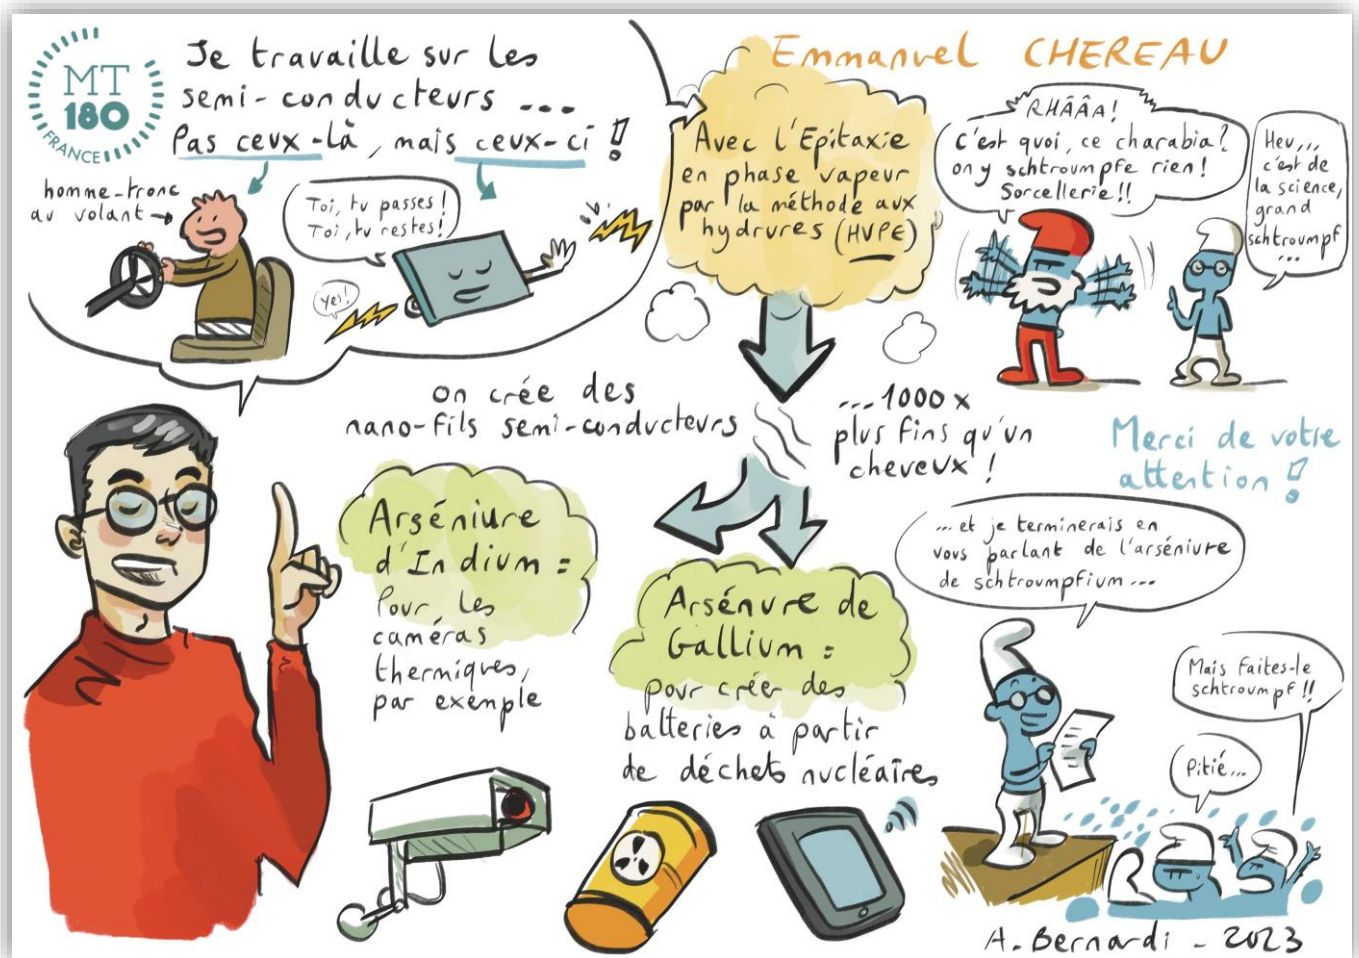 MT
180
FRANCE
Je travaille sur les
semi-conducteurs ...
Pas ceux-là, mais ceux-ci !
homme-tronc
au volant →
Toi, tu passes !
Toi, tu restes !
Yes!
Emmanuel CHEREAU
Avec l'Epitaxie
en phase vapeur
par la méthode aux
hydrures (HVPE)
RHÂÂA!
C'est quoi, ce charabia?
on y schtroumpfe rien!
Sorcellerie!!
Heu,...
c'est de
la science,
grand
schtroumpf
...
on crée des
nano-fils semi-conducteurs
...1000 x
plus fins qu'un
cheveux !
Merci de votre
attention !
Arséniure
d'Indium =
Pour les
caméras
thermiques,
par exemple
Arsénure de
Gallium =
pour créer des
batteries à partir
de déchets nucléaires
... et je terminerais en
vous parlant de l'arséniure
de schtroumpfium ...
Mais faites-le
schtroumpf !!
Pitié...
A. Bernardi - 2023